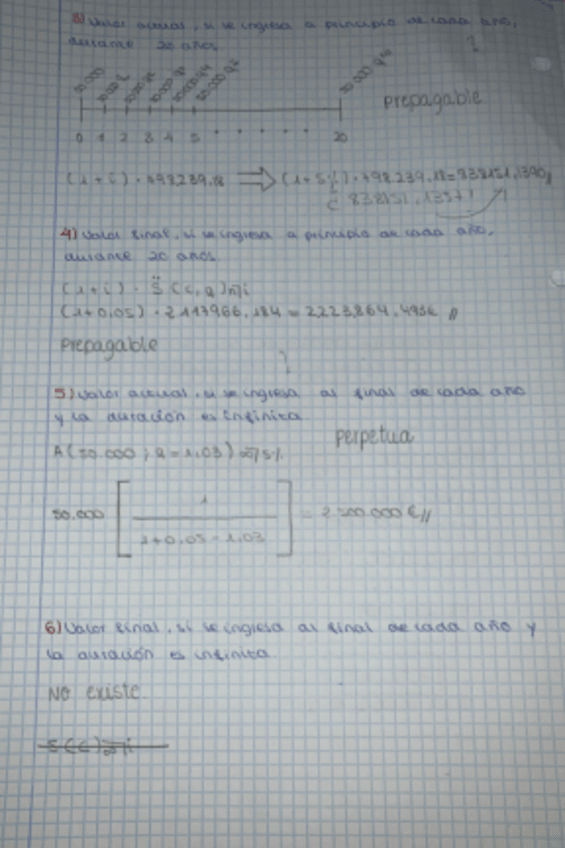 3) Valor actual, si se ingresa a principio de cada año,
durante 20 años. ?
50.000 50.000 q
50.000 q⁴ 50.000 q⁵
prepagable
0 1 2 3 4 5 . . . . . . 20
(1+i) · 798.239,18 ⟹ (1+5%) · 798.239,18=838151,1390
838151,1357
4) Valor final, si se ingresa a principio de cada año,
durante 20 años.
(1+i) · S̈ (c, q)n̅|i
(1+0,05) · 2117966,184 = 2223864,493€ //
prepagable
?
5) Valor actual, si se ingresa al final de cada año
y la duración es infinita
perpetua
A(50.000 ; q = 1,03) ∞̅|5%
50.000 [ 1 / 1+0,05-1,03 ] = 2500.000 €//
6) Valor final, si se ingresa al final de cada año y
la duración es infinita
NO existe.